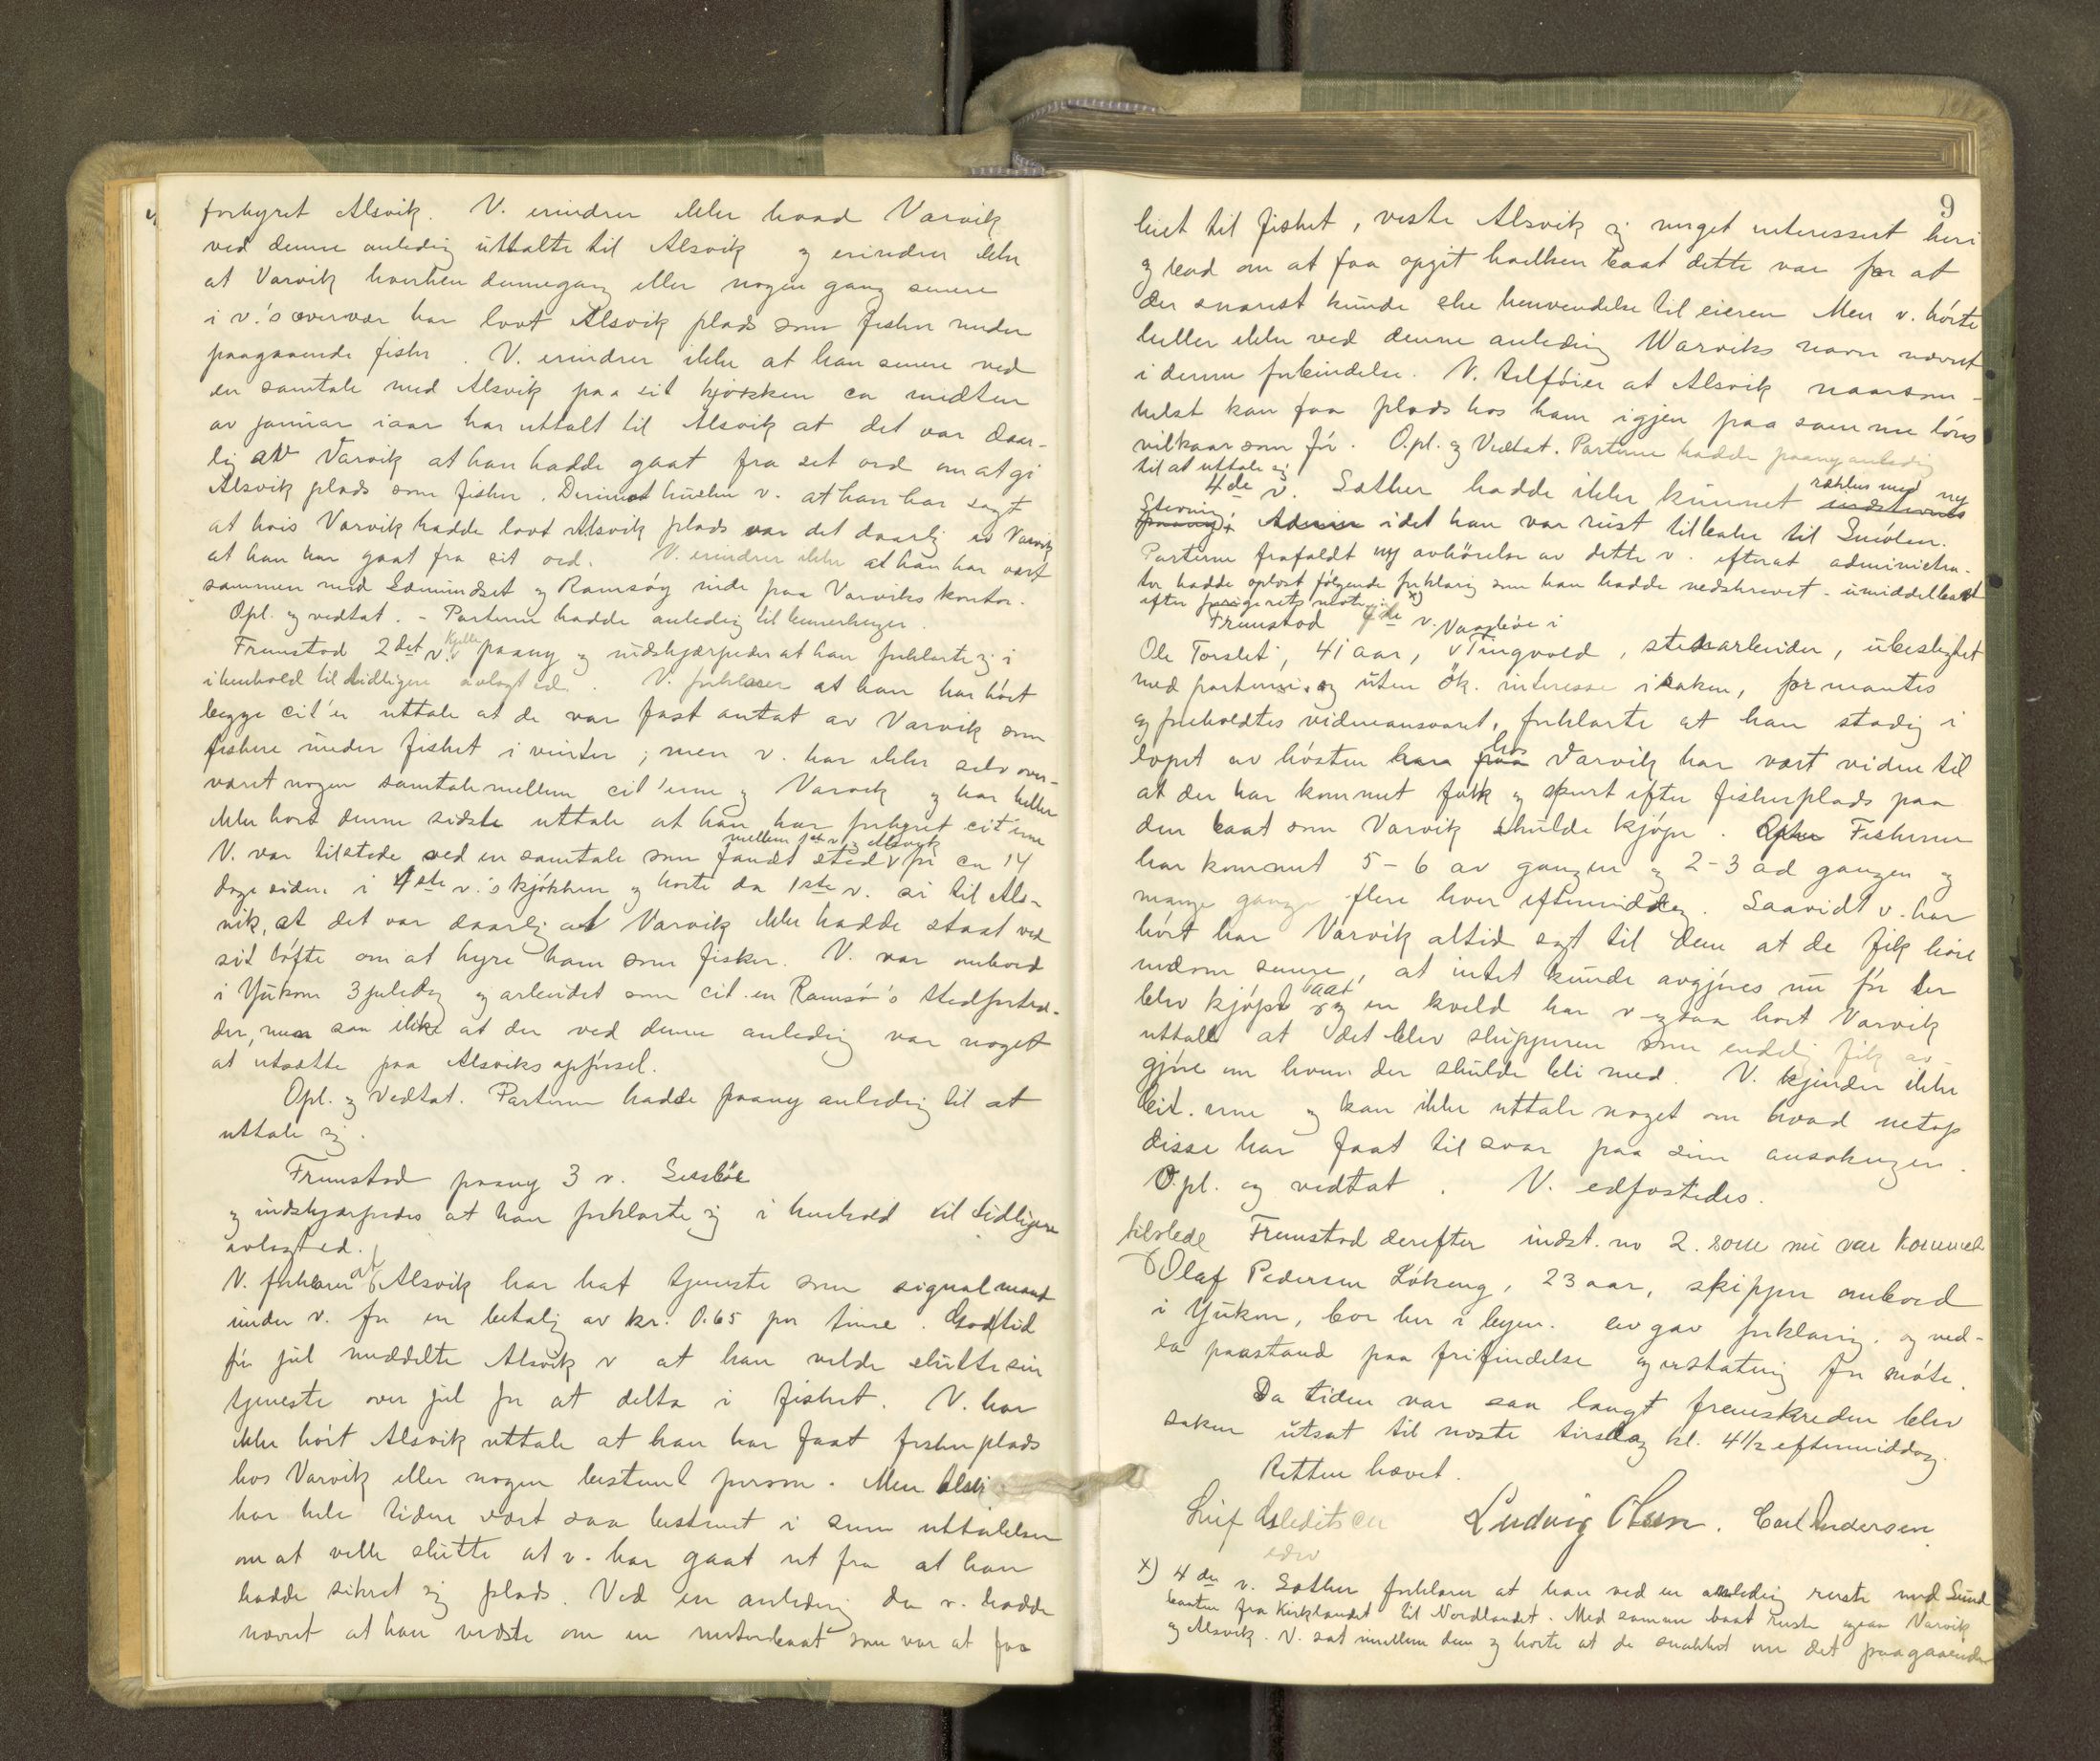 forhyret Alsvik. V. erindrer ikke hvad Varvik
ved denne anledig uttalte til Alsvik og erindrer ikke
at Varvik hverken dennegang eller nogen gang senere
i v.'s overvær har lovt Alsvik plads som fisker under
paagaaende fiske. V. erindrer ikke at han senere ved
en samtale med Alsvik paa sit kjøkken ca midten
av januar iaar har uttalt til Alsvik at det var daar-
lig av Varvik at han hadde gaat fra set ord om at gi
Alsvik plads som fisker. Derimot husker v. at han har sagt
at hvis Varvik hadde lovt Alsvik plads var det daarlig av Varvik
at han har gaat fra sit ord. V. erindrer ikke at han har vært
sammen med Sæmundset og Ramsøy inde paa Varviks kontor.
Opl. og vedtat. - Parterne hadde anledig til bemerkninger.
Fremstod 2det v. paany og indskjærpedes at han forklarte sig i
ihenhold til tidligere avlagt ed. V. forklarer at han har hört
begge cit'er uttale at de var fast antat av Varvik som
fiskere under fisket i vinter; men v. har ikke selv over-
været nogen samtale mellem cit'erne og Varvik og har heller
ikke hört denne sidste uttale at han har forhyret cit'erne
mellem 1ste v. og Alsvik
V. var tilstede ved en samtale som fandt sted for ca 14
dage siden i 4de v.'s kjøkken og hørte da 1ste v. si til Als-
vik, at det var daarlig at Varvik ikke hadde staat ved
sit løfte om at hyre ham som fisker. V. var ombord
i Yukon 3 juledag og arbeidet som cit.en Ramsø's stedfortræ-
der, men saa ikke at der ved denne anledig var noget
at utsætte paa Alsviks opførsel.
Opl. og Vedtat. Parterne hadde paany anledig til at
uttale sig.
Fremstod paany 3 v.
og indskjærpedes at han forklarte sig i henhold til tidligere
avlagt ed.
V. forklarer at Alsvik har hat tjeneste som signalmand
under v. for en betalig av kr. 0.65 pr time. Godtid
før jul meddelte Alsvik v at han vilde slutte sin
tjeneste over jul for at delta i fisket. V. har
ikke hört Alsvik uttale at han har faat fiskerplads
hos Varvik eller nogen bestemt person. Men Alsvi
har hele tiden vært saa bestemt i sine uttalelser
om at ville slutte at v. har gaat ut fra at han
hadde sikret sig plads. Ved en anledig da v. hadde
nævnt at han vidste om en motorbaat som var at faa
9
leiet til fisket, viste Alsvik sig meget interessert heri
og bad om at faa opgit hvilken baat dette var for at
der snarest kunde ske henvendelse til eieren. Men v. hörte
heller ikke ved denne anledig Warviks navn nævnt
i denne forbindelse. V. tilføier at Alsvik naarsom-
helst kan faa plads hos ham igjen paa samme løns
vilkaar som før. Opl. og Vedtat. Parterne hadde paany anledig
til at uttale sig
4de v. Sæther hadde ikke kunnet rækkes med ny
Stevning idet han var reist tilbake til Smölen.
Parterne frafaldt ny avhörelse av dette v. efterat administra-
tor hadde oplæst følgende forklarig som han hadde nedskrevet umiddelbart
efter forrige retsmöte: x)
Fremstod v. Vaagbøe i
Ole Torslet, 41 aar, Tingvold, stenarbeider, ubeslegtet
med parterne og uten ök. interesse i saken, formantes
og foreholdtes vidneansvaret, forklarte at han stadig i
løpet av høsten hos Varvik har vært vidne til
at der har kommet folk og spurt efter fiskerplads paa
den baat som Varvik skulde kjøpe. Fiskerne
har kommet 5-6 av gangen og 2-3 ad gangen og
mange gange flere hver eftermiddag. Saavidt v. har
hört har Varvik altid sagt til dem at de fik höre
nedom senere, at intet kunde avgjøres nu før der
blev kjøpt baat og en kveld har v ogsaa hört Varvik
uttale at det blev skipperen som endelig fik av-
gjøre om hvem der skulde bli med. V. kjender ikke
cit.erne og kan ikke uttale noget om hvad netop
disse har faat til svar paa sine ansøkninger.
Opl. og vedtat. V. edfæstedes.
Fremstod derefter indst. no 2. som nu var kommet
tilstede
Olaf Pedersen Løkeng, 23 aar, skipper ombord
i Yukon, bor her i byen. avgav forklaring og ned-
la paastand paa frifindelse og erstatnig for möte.
Da tiden var saa langt fremskreden blev
saken utsat til næste tirsdag kl. 4½ eftermiddag.
Retten hævet.
Leif Ludvig Olsen. Carl Andersen
x) 4de v. Sæther forklarer at han ved en anledig reiste med Sund
baaten fra Kirklandet til Nordlandet. Med samme baat reiste ogsaa Varvik
og Alsvik. V. sat imellem dem og hørte at de snakket om det paagaaende